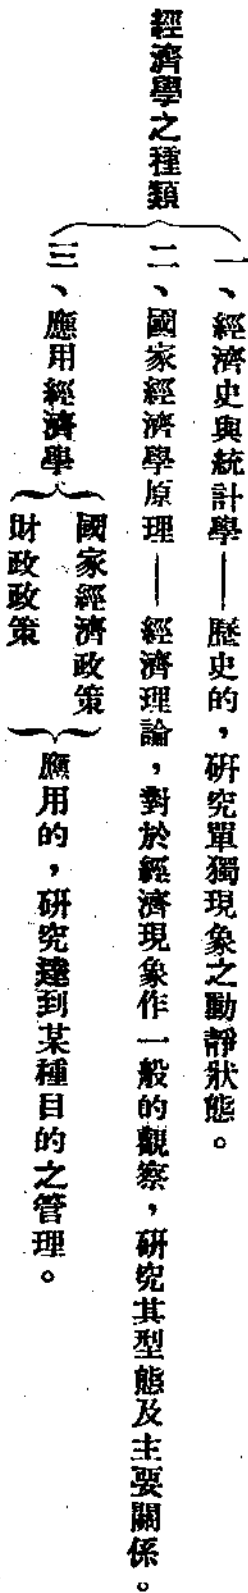 經濟學之種類
一、經濟史與統計學——歷史的，研究單獨現象之動靜狀態。
二、國家經濟學原理——經濟理論，對於經濟現象作一般的觀察，研究其型態及主要關係。
三、應用經濟學
國家經濟政策
財政政策
應用的，研究達到某種目的之管理。